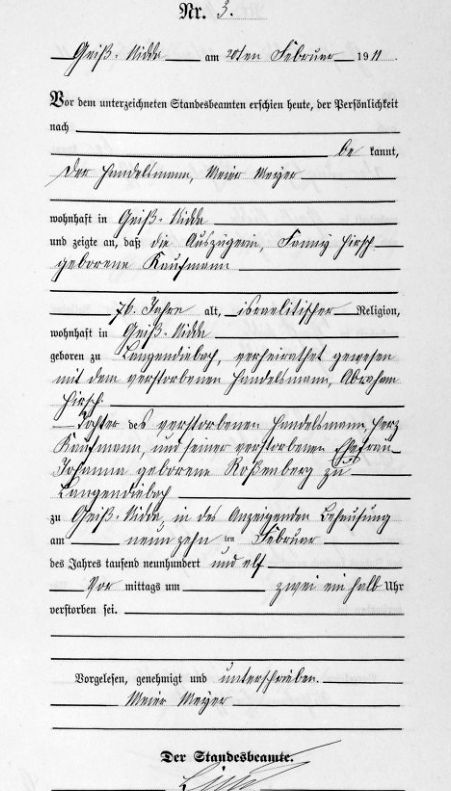 Nr. 3.
Geiß-Nidda am 20ten Februar 1911.
Vor dem unterzeichneten Standesbeamten erschien heute, der Persönlichkeit
nach
be kannt,
der Handelsmann, Meier Meyer
wohnhaft in Geiß-Nidda
und zeigte an, daß die Auszügerin, Fanny Hirsch
geborene Kaufmann
76 Jahre alt, israelitischer Religion,
wohnhaft in Geiß-Nidda
geboren zu Langendiebach, verheirathet gewesen
mit dem verstorbenen Handelsmann, Abraham
Hirsch.
Tochter des verstorbenen Handelsmann, Herz
Kaufmann, und seiner verstorbenen Ehefrau
Johanna geborene Roßenberg zu
Langendiebach
zu Geiß-Nidda, in des Anzeigenden Behausung
am neunzehn ten Februar
des Jahres tausend neunhundert und elf
Vor mittags um zwei ein halb Uhr
verstorben sei.
Vorgelesen, genehmigt und unterschrieben.
Meier Meyer
Der Standesbeamte.